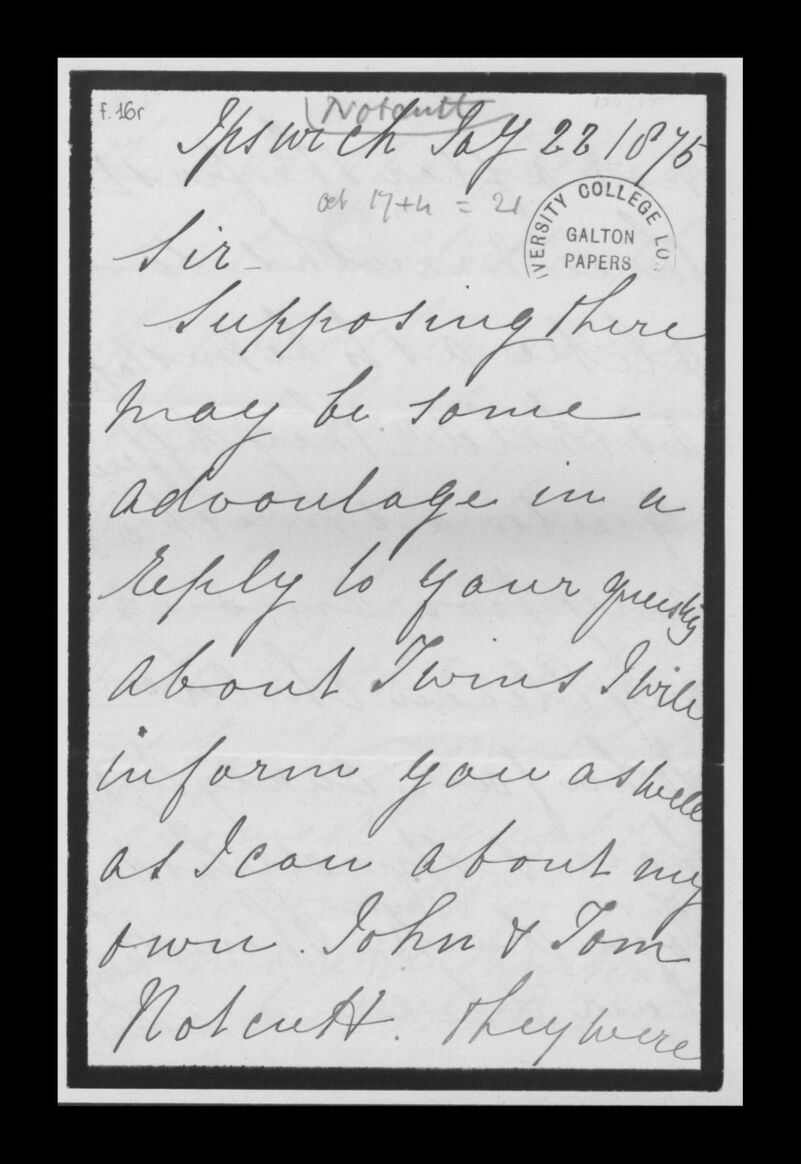 f. 16r
Notcutt
Ipswich July 22 1875
oct 17+4 = 21
UNIVERSITY COLLEGE LO
GALTON
PAPERS
Sir –
Supposing there
may be some
advantage in a
reply to your
about Twins I will
inform you as well
as I can about my
own. John & Tom
Notcutt. they were